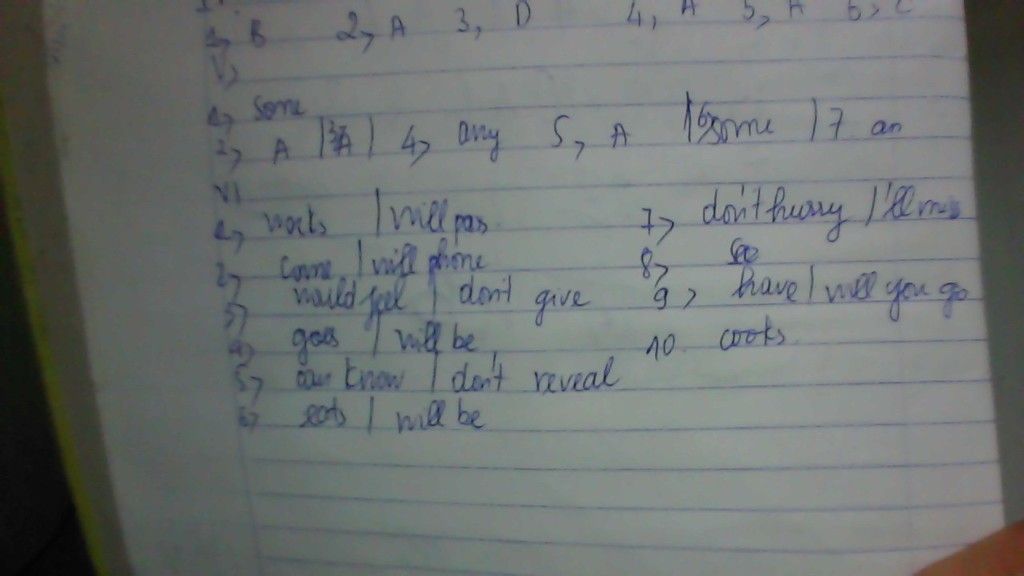 1, B 2, A 3, D 4, A 5, A 6, C
V,
1, some
2, A | 3, A | 4, any 5, A | 6, some | 7 an
VI
1, works | will pass 7, don't hurry | 'll miss
2, come | will phone 8, see
3, would feel | don't give 9, have | will you go
4, goes | will be 10 cooks
5, can know | don't reveal
6, eats | will be